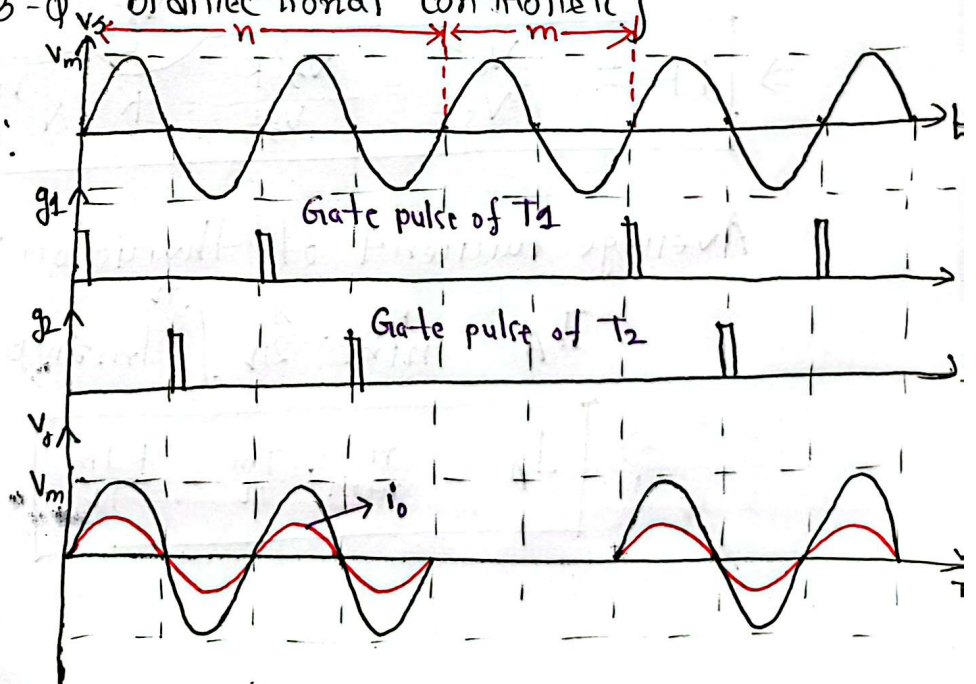 Vs
n m
Vm
t
g1
Gate pulse of T1
g2
Gate pulse of T2
Vo
Vm
io